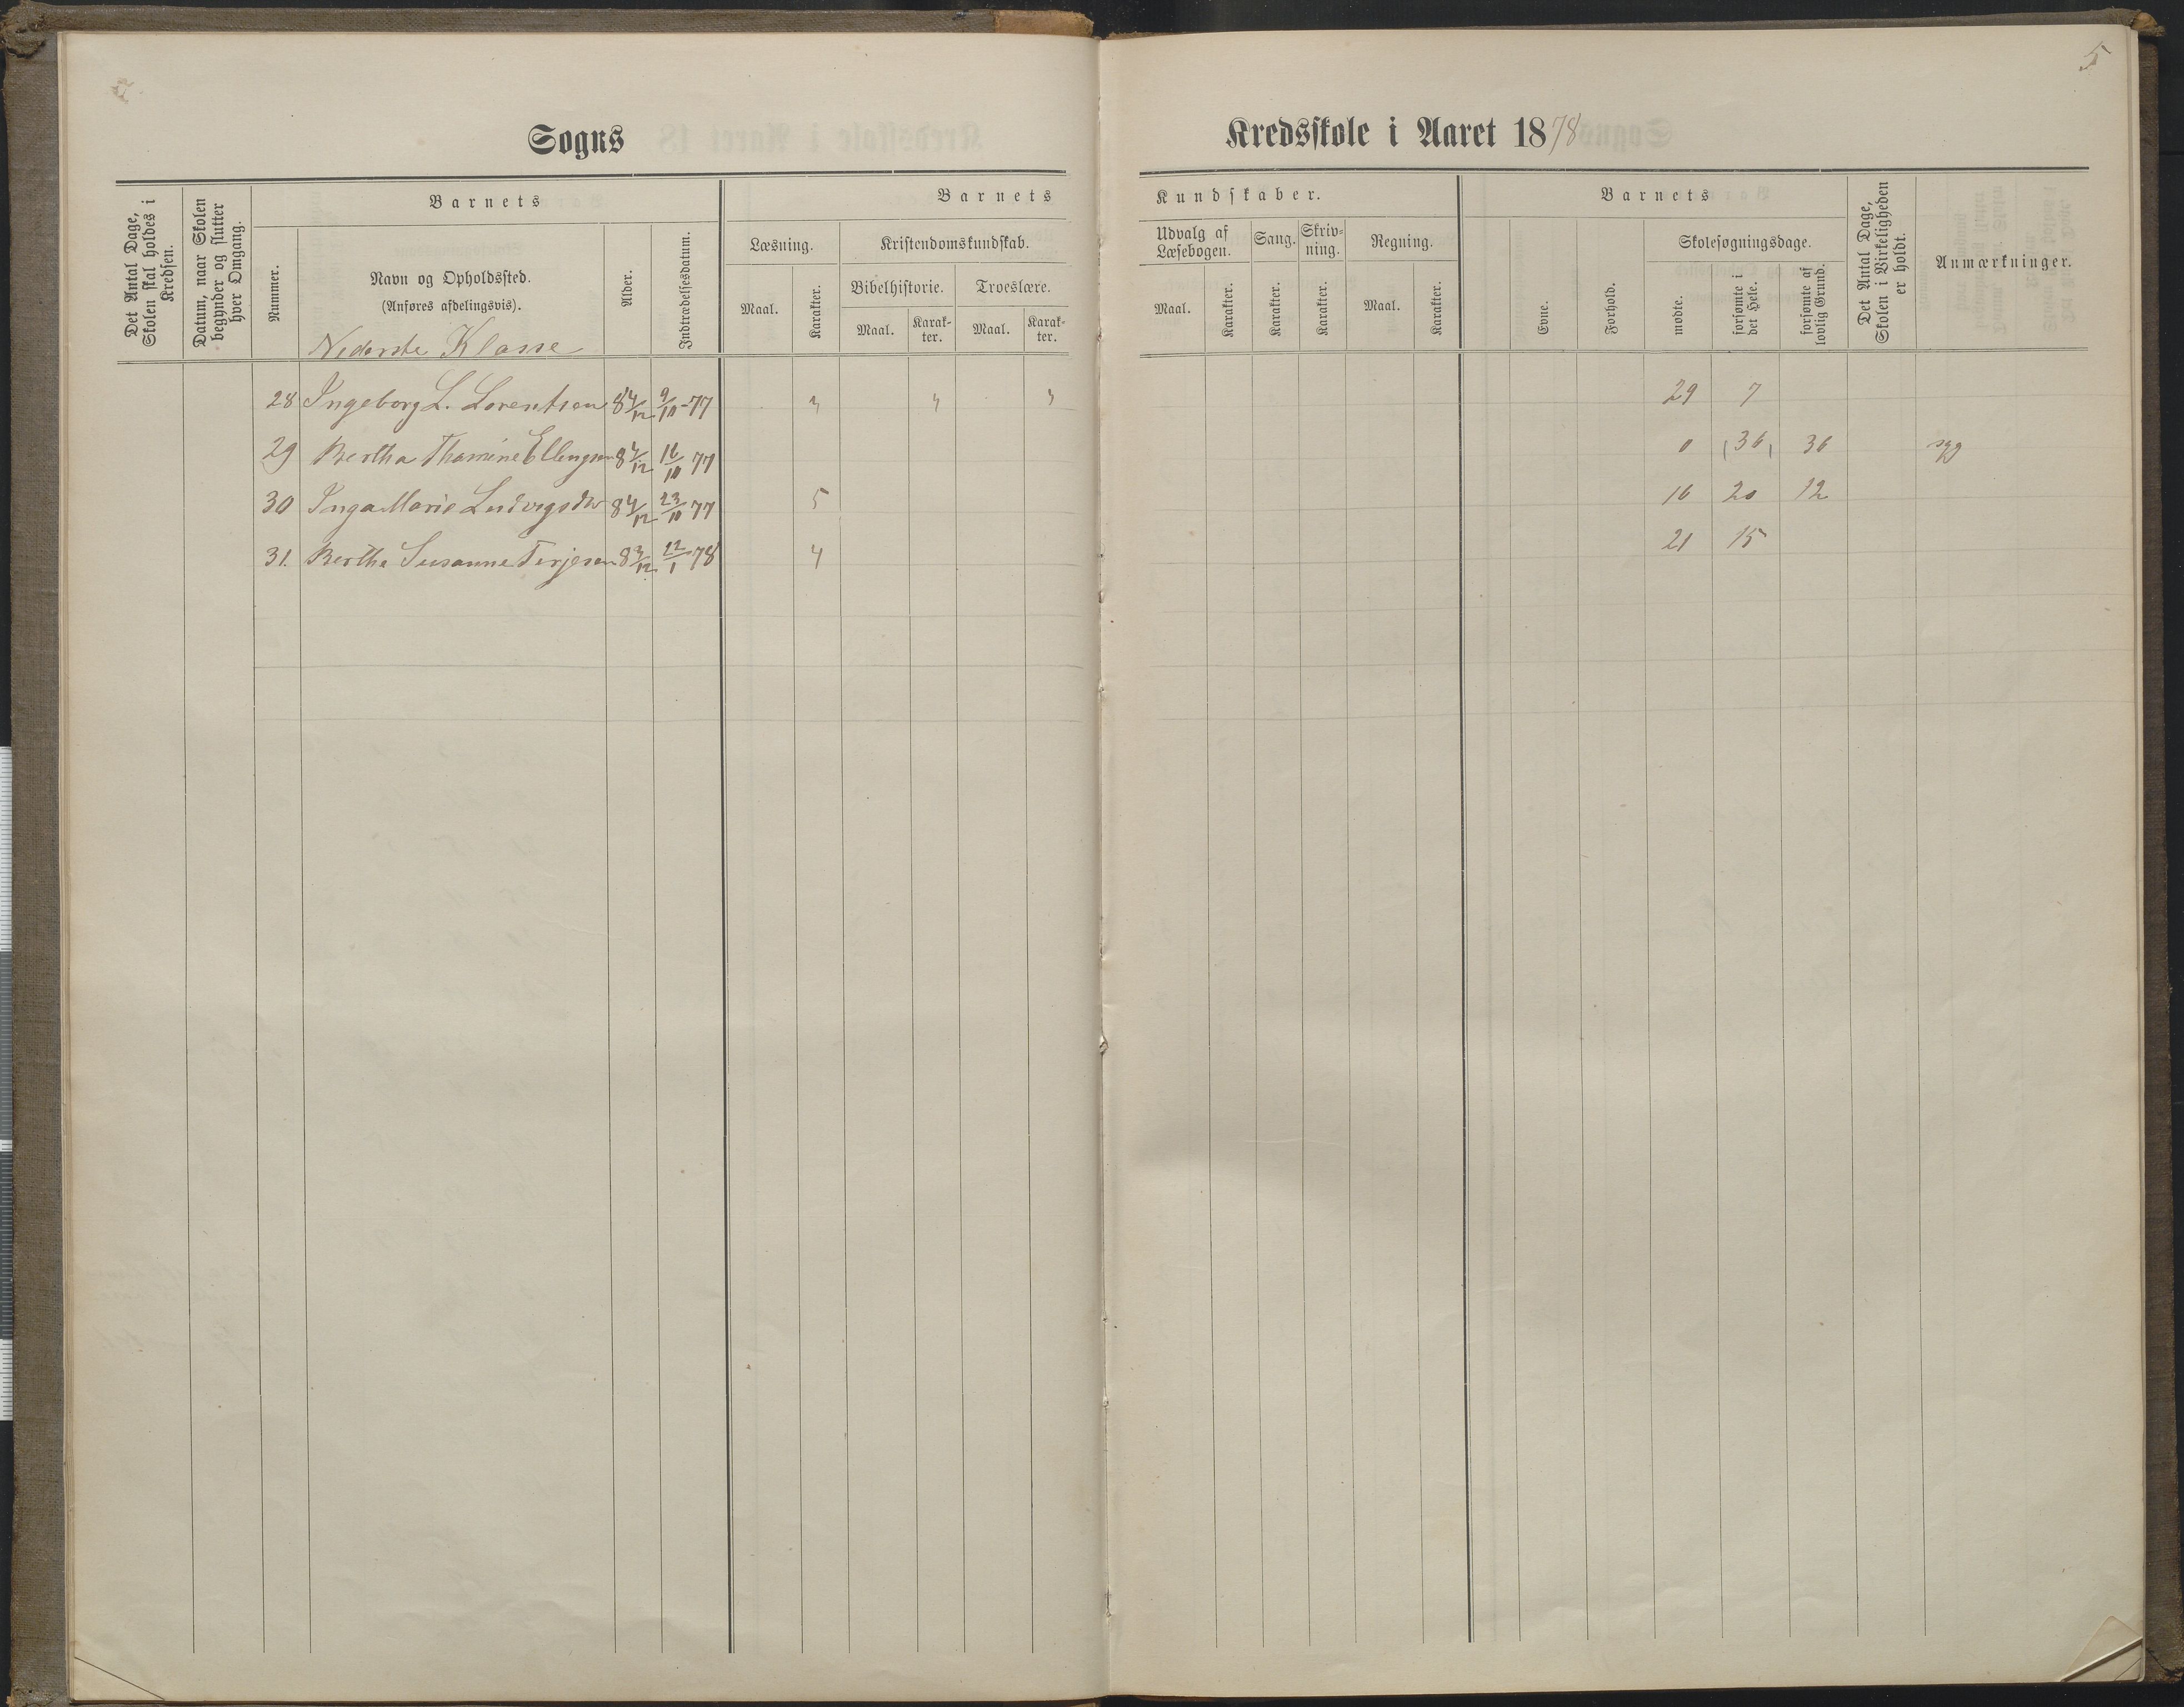 5
Sogns
Kredsskole i Aaret 1878
Det Antal Dage, Skolen skal holdes i Kredsen.
Datum, naar Skolen begynder og slutter hver Omgang.
Barnets
Nummer.
Navn og Opholdssted.
(Anføres afdelingsvis).
Nederste Klasse
Alder.
Indtrædelsesdatum.
Barnets
Læsning.
Kristendomskundskab.
Maal.
Karakter.
Bibelhistorie.
Troeslære.
Maal.
Karakter.
Maal.
Karakter.
Kundskaber.
Udvalg af Læsebogen.
Sang.
Skrivning.
Regning.
Maal.
Karakter.
Karakter.
Karakter.
Maal.
Karakter.
Barnets
Evne.
Forhold.
Skolesøgningsdage.
mødte.
forsømte i det Hele.
forsømte af lovlig Grund.
Det Antal Dage, Skolen i Virkeligheden er holdt.
Anmærkninger.
28 Ingeborg L. Lorentsen 8 4/12 9/10-77 29 7
29 Bertha Thomine Ellingsen 8 4/12 16/10 77 0 (36) 36 syg
30 Inga Marie Ludvigsdtr 8 4/12 23/10 77 5 16 20 12
31. Bertha Susanne Terjesen 8 3/12 22/1 78 4 21 15